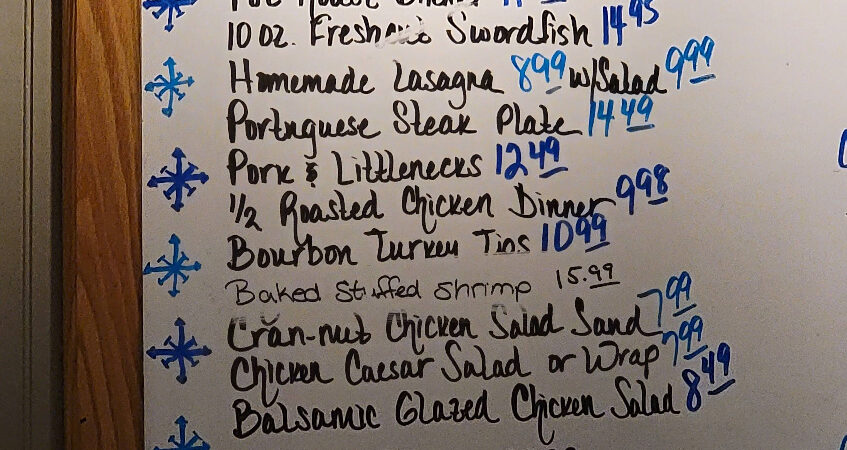 10 oz. Fresh cut Swordfish 14 95
Homemade Lasagna 8 99 w/Salad 9 99
Portuguese Steak Plate 14 49
Pork & Littlenecks 12 49
1/2 Roasted Chicken Dinner 9 98
Bourbon Turkey Tips 10 99
Baked Stuffed Shrimp 15.99
Cran-nut Chicken Salad Sand 7 99
Chicken Caesar Salad or Wrap 7 99
Balsamic Glazed Chicken Salad 8 49